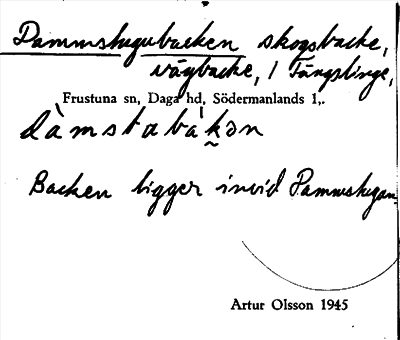 Dammstugubacken skogsbacke,
vägbacke, / Tängslinge,
Frustuna sn, Daga hd, Södermanlands l.
dàmstabàkən
Backen ligger invid Dammstugan.
Artur Olsson 1945